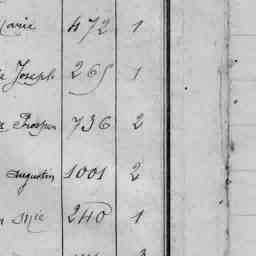 Marie 472 1
Joseph 265 1
Prosper 736 2
Augustin 1001 2
240 1